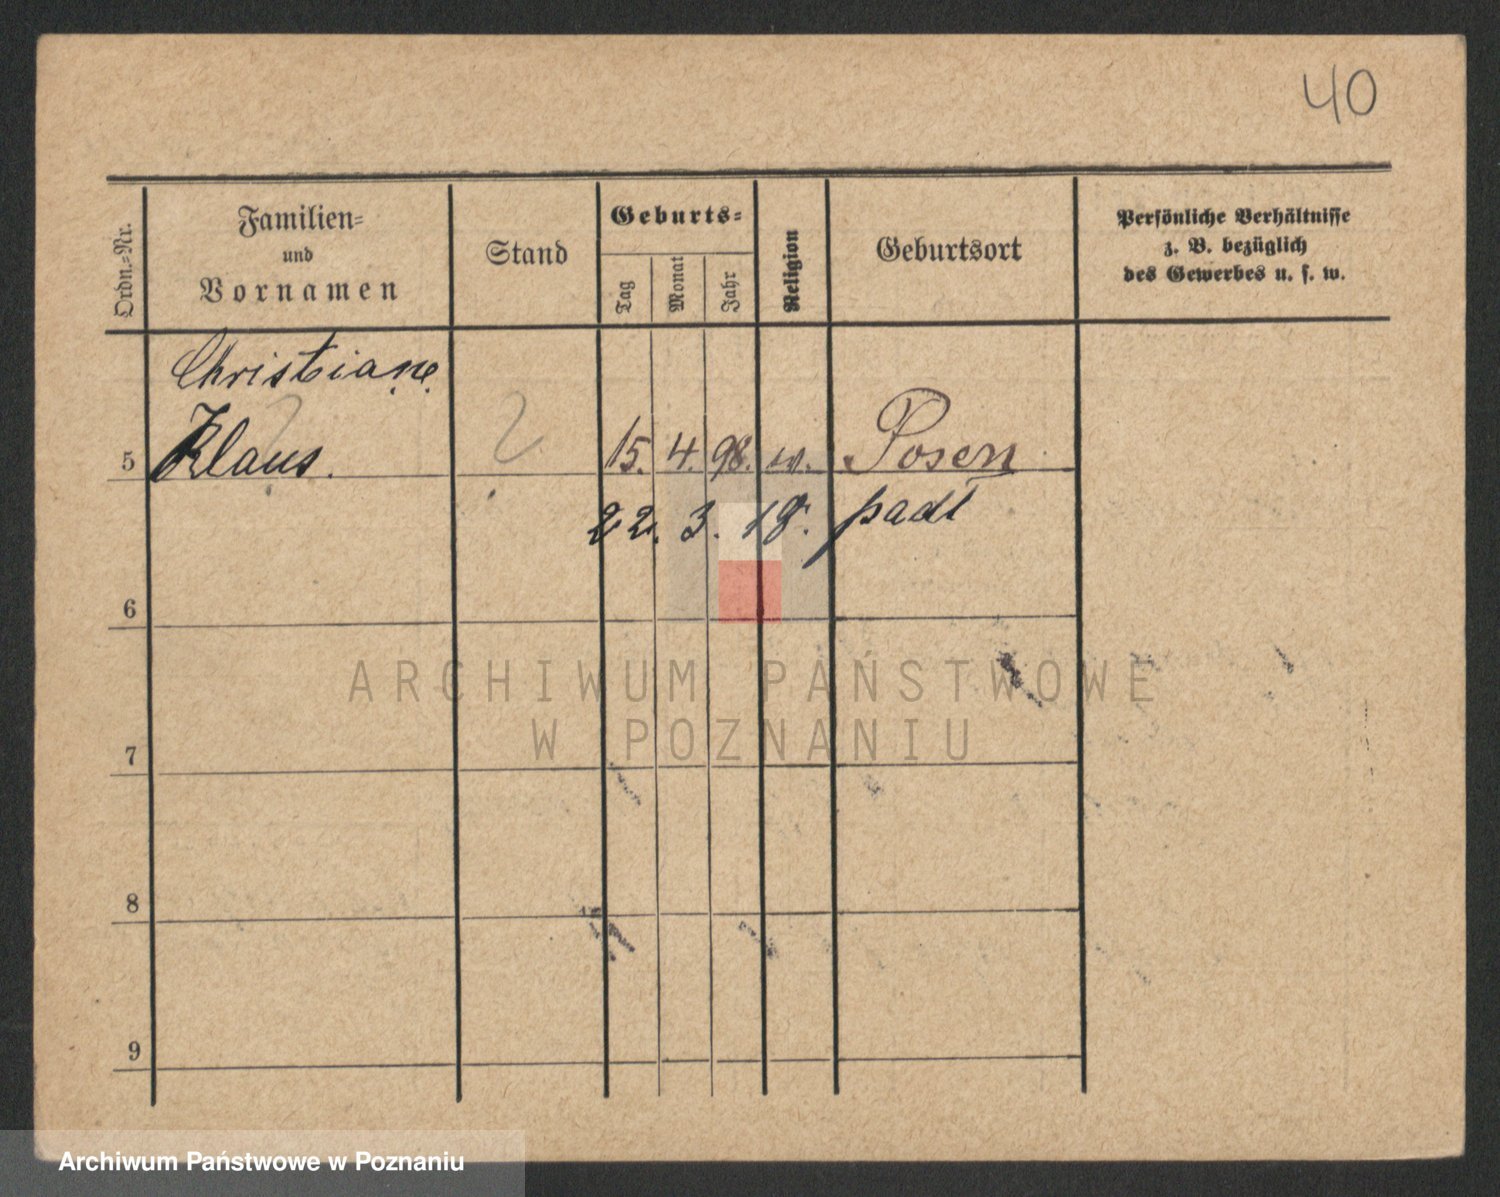 40
Ordn.-Nr.
Familien-
und
Vornamen
Stand
Geburts-
Tag
Monat
Jahr
Religion
Geburtsort
Persönliche Verhältnisse
z. B. bezüglich
des Gewerbes u. s. w.
Christiane
5 Klaus. 15. 4. 98. w. Posen
22. 3. 18. padl
6
ARCHIWUM PAŃSTWOWE
W POZNANIU
7
8
9
Archiwum Państwowe w Poznaniu